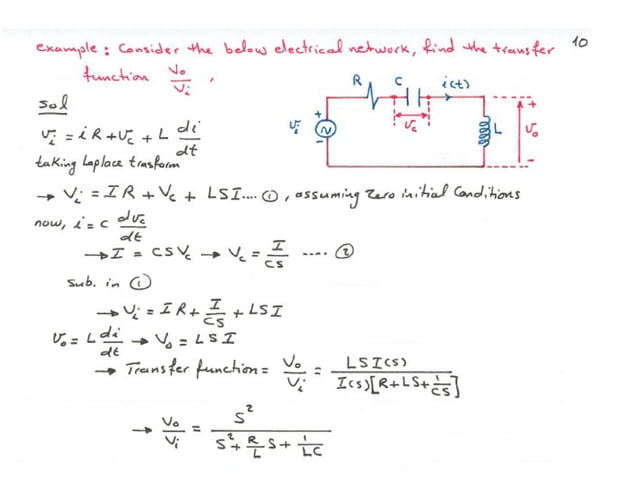 example : Consider the below electrical network, find the transfer 10
function Vo/Vi ,
R C i(t)
sol
+ +
vi ~ vc L vo
- -
vi = iR + vc + L di/dt
taking Laplace trasform
→ Vi = IR + Vc + LSI.... ①, assuming Zero initial Conditions
now, i = c dvc/dt
→ I = CSVc → Vc = I/CS .... ②
sub. in ①
→ Vi = IR + I/CS + LSI
vo = L di/dt → Vo = LSI
→ Transfer function = Vo/Vi = LSI(s) / I(s)[R+LS+1/CS]
→ Vo/Vi = S² / S² + R/L S + 1/LC